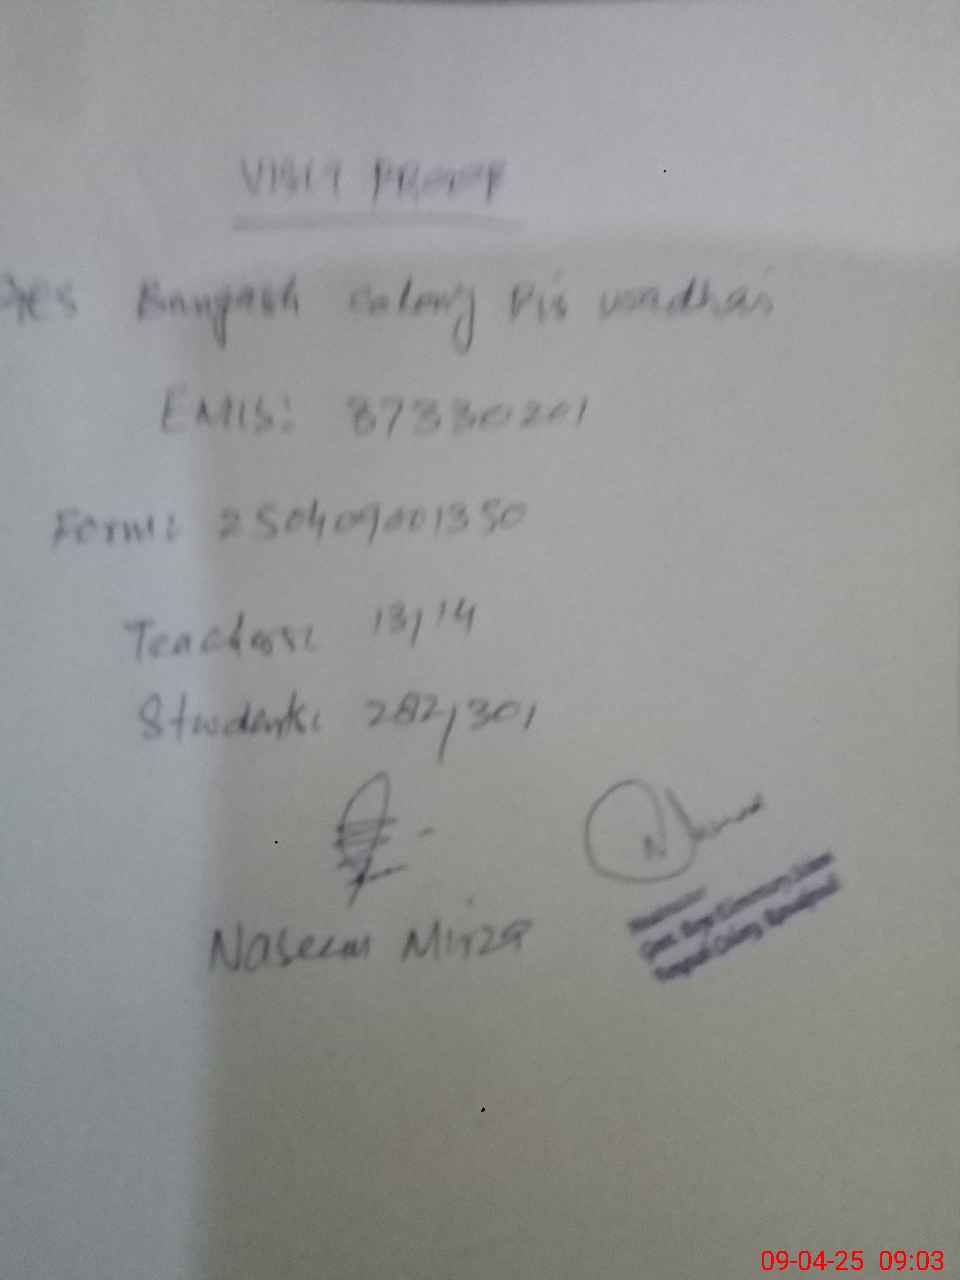 VISIT PROOF
Bangash Colony Pir wadhai
EMIS: 37330201
Form: 250409001350
Teachers: 13/14
Students: 282/301
Naseem Mirza
Colony
09-04-25 09:03